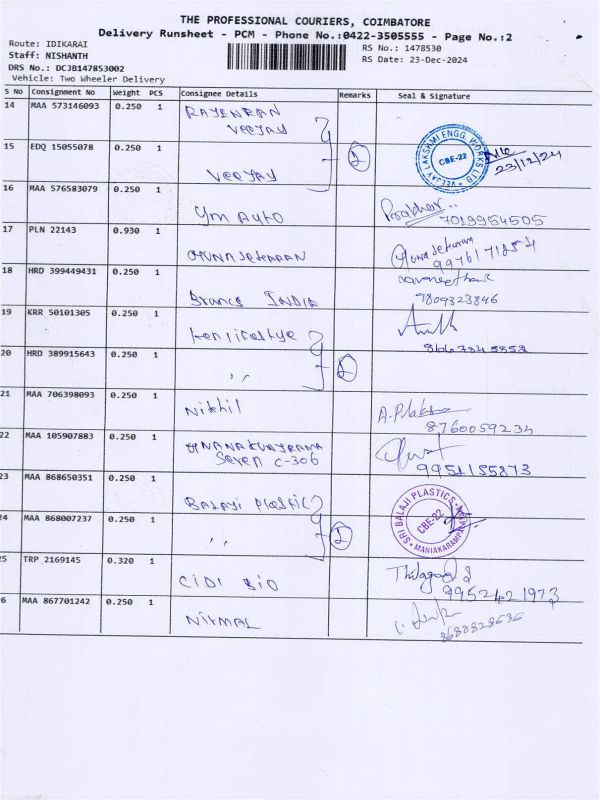 THE PROFESSIONAL COURIERS, COIMBATORE
Delivery Runsheet - PCM - Phone No.:0422-3505555 - Page No.:2
Route: IDIKARAI
RS No.: 1478530
Staff: NISHANTH
RS Date: 23-Dec-2024
DRS No.: DCJB147853002
Vehicle: Two Wheeler Delivery
S No Consignment No Weight PCS Consignee Details Remarks Seal & Signature
14 MAA 573146093 0.250 1 RAJENRAN
VEEJAY
15 EDQ 15055078 0.250 1 VEEJAY 2 VEEJAY LAKSHMI ENGG. WORKS LTD. CBE-22 23/12/24
16 MAA 576583079 0.250 1 YM AUTO Prabhar 7019954505
17 PLN 22143 0.930 1 GUNASEKARAN Guna Sekaran
18 HRD 399449431 0.250 1 Brancs INDIA 9809323846
19 KRR 50101305 0.250 1
20 HRD 389915643 0.250 1 ,, 2
21 MAA 706398093 0.250 1 Nikhil 8760059234
22 MAA 105907883 0.250 1
Seven C-306 9951155873
23 MAA 868650351 0.250 1 BALAJI PLASTIC
24 MAA 868007237 0.250 1 ,, 2 SRI BALAJI PLASTICS CBE-22 MANIAKARAMPALAYAM
25 TRP 2169145 0.320 1 CIDI BIO 9952421973
26 MAA 867701242 0.250 1 NIRMAL